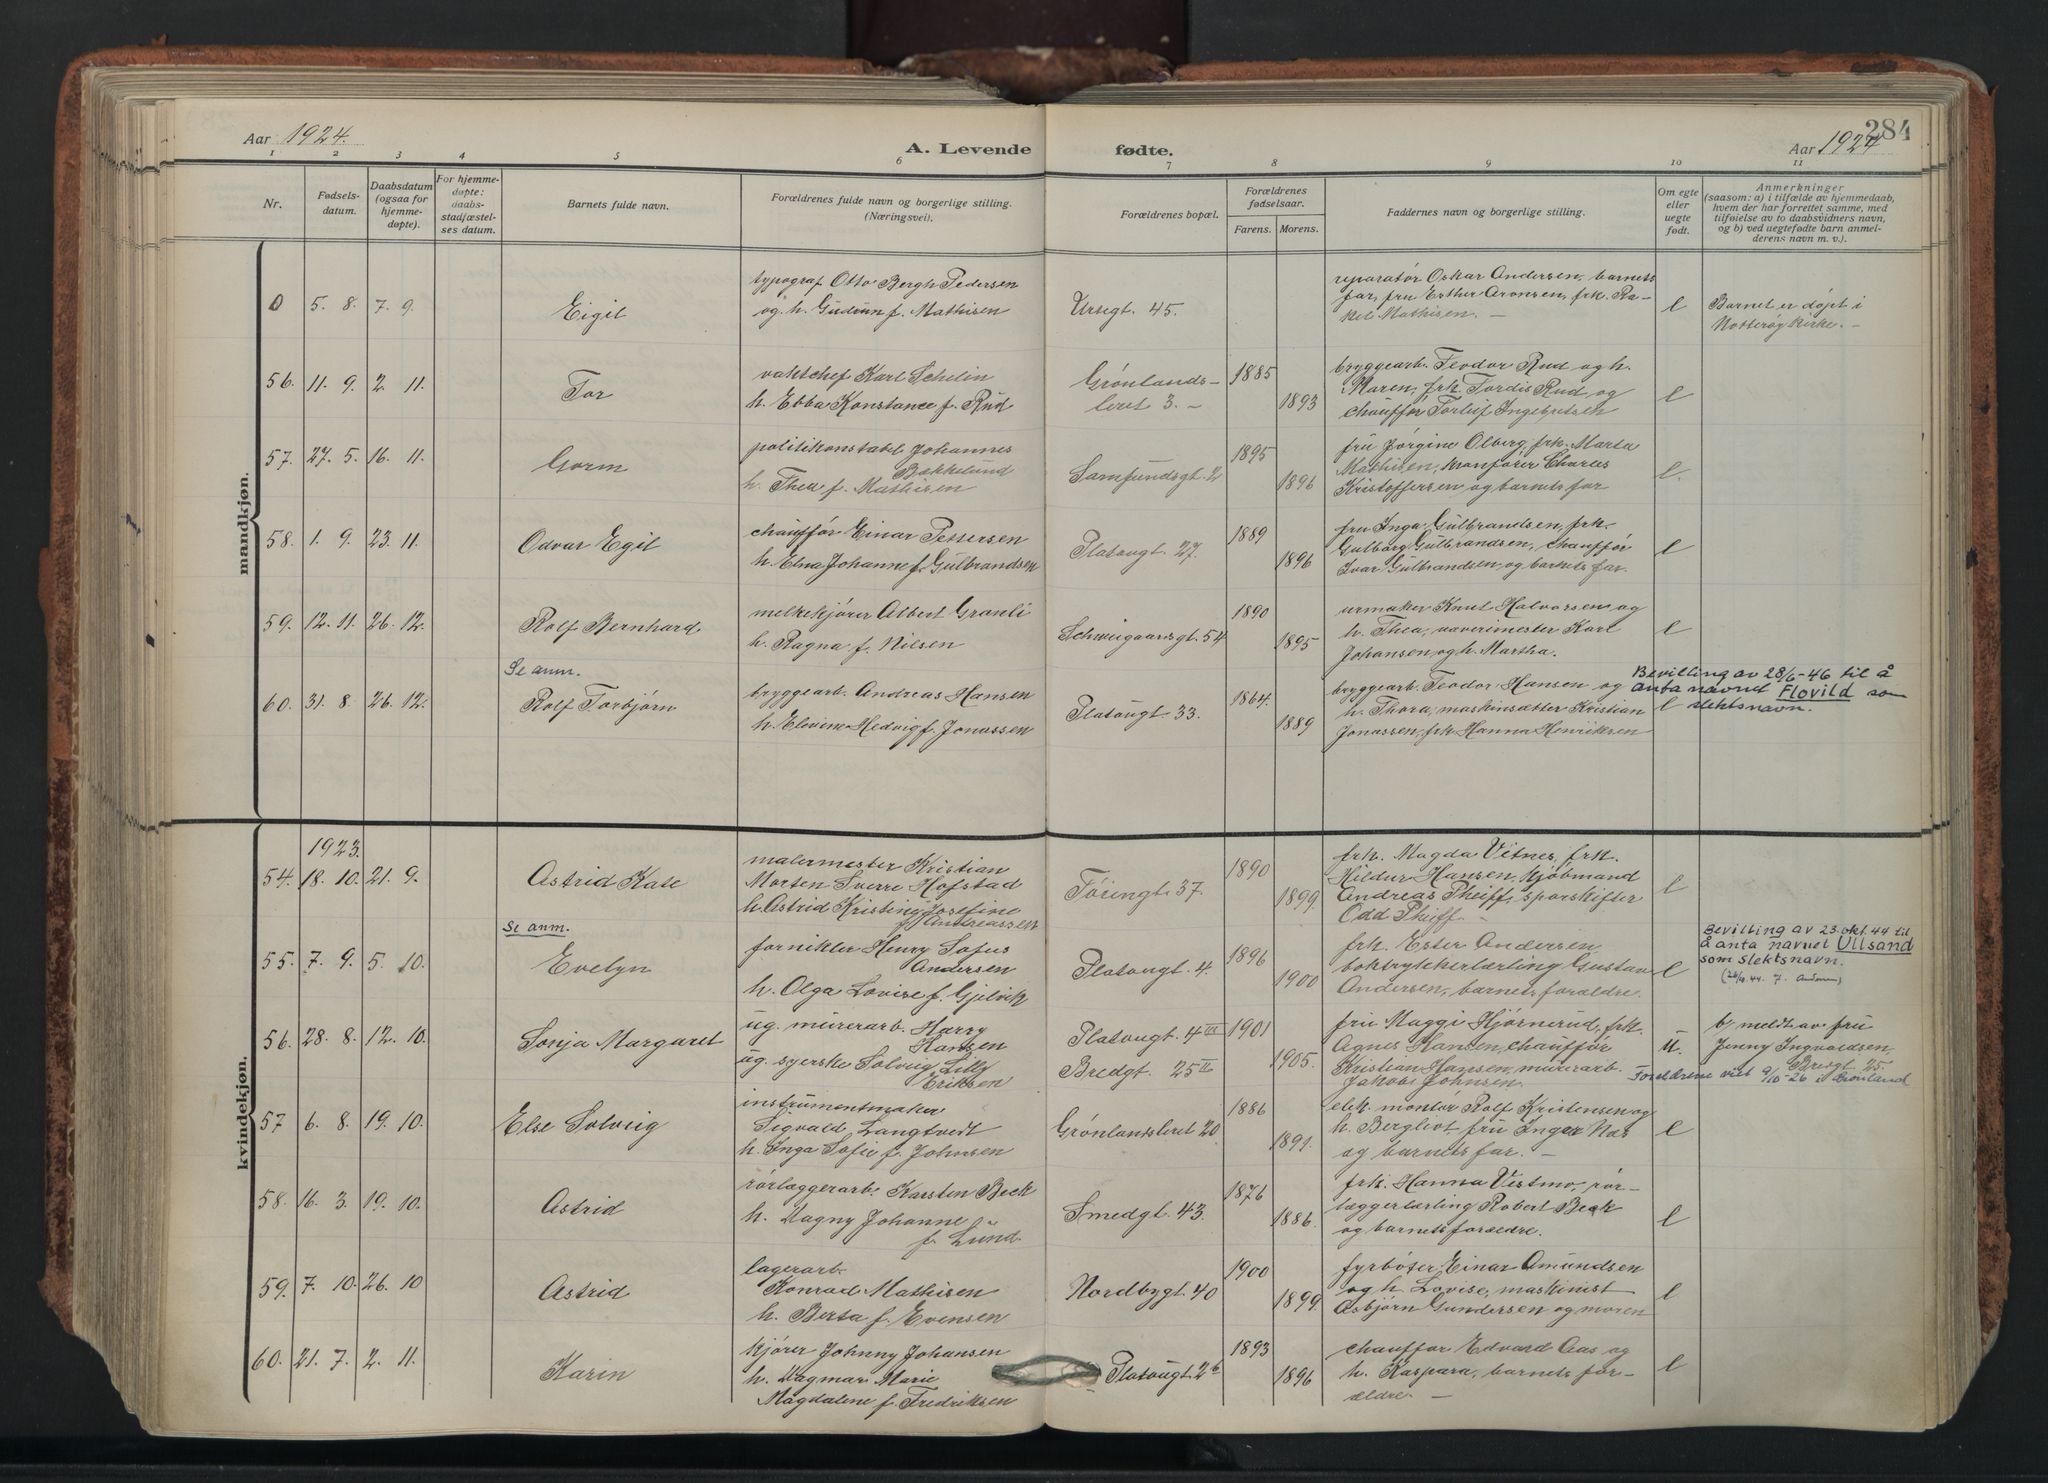 284
Aar 1924.
A. Levende
fødte.
Aar 1924
1 2 3 4 5 6 7 8 9 10 11
Nr.
Fødsels-
datum.
Daabsdatum
(ogsaa for
hjemme-
døpte).
For hjemme-
døpte:
daabs-
stadfæstel-
ses datum.
Barnets fulde navn.
Forældrenes fulde navn og borgerlige stilling.
(Næringsvei).
Forældrenes bopæl.
Forældrenes
fødselsaar.
Farens. Morens.
Faddernes navn og borgerlige stilling.
Om egte
eller
uegte
født.
Anmerkninger
(saasom: a) i tilfælde av hjemmedaab,
hvem der har forrettet samme, med
tilføielse av to daabsvidners navn,
og b) ved uegtefødte barn anmel-
derens navn m. v.).
mandkjøn.
0 5. 8. 7. 9.
Eigil
typograf Otto Bergh Pedersen
og h. Gudrun f. Mathisen
Ursegt. 45.
reparatør Oskar Andersen, barnets
far, fru Esther Aronsen, frk. Ra-
kel Mathisen. —
e
Barnet er døpt i
Nøtterøy kirke. —
56. 11. 9. 2. 11.
Tor
vaktchef Karl Schelin
h. Ebba Konstance f. Rud
Grønlands-
leret 3. —
1885
1893
bryggearb. Teodor Rud og h.
Maren, frk. Tordis Rud og
chauffør Torleif Ingebretsen
e
57. 27. 5. 16. 11.
Gorm
politikonstabel Johannes
Bakkelund
h. Thea f. Mathisen
Samfundsgt. 2
1895
1896
fru Jørgine Olberg, frk. Marta
Mathisen, kranfører Charles
Kristoffersen og barnets far
e.
58. 1. 9. 23. 11.
Odvar Egil
chauffør Einar Pettersen
h. Elna Johanne f. Gulbrandsen
Platougt. 27.
1889
1896
fru Inga Gulbrandsen, frk.
Gulborg Gulbrandsen, chauffør
Ivar Gulbrandsen, og barnets far.
e
59. 12. 11. 26. 12.
Rolf Bernhard
melkekjører Albert Granli
h. Ragna f. Nilsen
Schweigaardsgt. 54
1890
1895
urmaker Knut Halvorsen og
h. Thea, væverimester Karl
Johansen, og h. Martha.
e
60. 31. 8. 26. 12.
Se anm.
Rolf Torbjørn
bryggearb. Andreas Hansen
h. Elovine Hedvig f. Jonassen
Platougt. 33.
1864.
1889
bryggearb. Teodor Hansen og
h. Thora, maskinsætter Kristian
Jonassen, frk Hanna Henriksen
e
Bevilling av 28/6-46 til å
anta navnet Flovild som
slektsnavn.
kvindekjøn.
1923.
54. 18. 10. 21. 9.
Astrid Kate
malermester Kristian
Morten Sverre Hofstad
h. Astrid Kristine Josefine
f. Andreassen
Töiengt. 37.
1890
1899.
frk. Magda Vitnes, frk.
Hildur Hansen, kjøbmand
Andreas Pheiff, sporskifter
Odd Pheiff. —
e
55. 7. 9. 5. 10.
Se anm.
Evelyn
fornikler Henry Sofus
Andersen
h. Olga Lovise f. Gjelvik
Platougt. 4.
1896
1900
frk. Ester Andersen
boktrykkerlærling Gustav
Andersen, barnets forældre.
e
Bevilling av 23. okt. 44 til
å anta navnet Ullsand
som slektsnavn.
56. 28. 8. 12. 10.
Sonja Margaret
ug. murerarb. Harry
Hansen
ug. syerske Solveig Lilly
Eriksen
Platougt. 4 III
Bredgt. 25 II
1901
1905.
fru Maggi Hjørnerud, frk.
Agnes Hansen, chauffør
Kristian Hansen, murerarb.
Jakob Johnsen.
u.
b/ meldt av fru
Jenny Ingvaldsen,
Bredgt. 25.
Foreldrene viet 9/10-26 i Grønland
57 6. 8. 19. 10.
Else Solveig
instrumentmaker
Sigvald Langtvedt
h. Inga Sofie f. Johnsen
Grønlandsleret 20
1886
1891.
elek. montør Rolf Kristensen og
h. Bergliot fru Inger Næs
og barnets far. —
e
58. 16. 3. 19. 10.
Astrid
rørlæggerarb. Karsten Beck
h. Dagny Johanne
f. Lund
Smedgt. 43.
1876
1886.
frk. Hanna Vestmo, rør-
læggerlærling Robert Beck
og barnets forældre.
e
59. 7. 10. 26. 10
Astrid
lagerarb.
Konrad Mathisen
h. Berta f. Evensen
Nordbygt. 40
1900
1899.
fyrbøter Einar Amundsen
og h. Lovise, maskinist
Asbjørn Gundersen og moren
e
60. 21. 7. 2. 11.
Karin
kjører Johnny Johansen
h. Dagmar Marie
Magdalene f. Fredriksen
Platougt. 2b
1893
1896
chauffør Edvard Aas og
h. Kaspara, barnets for-
ældre. —
e